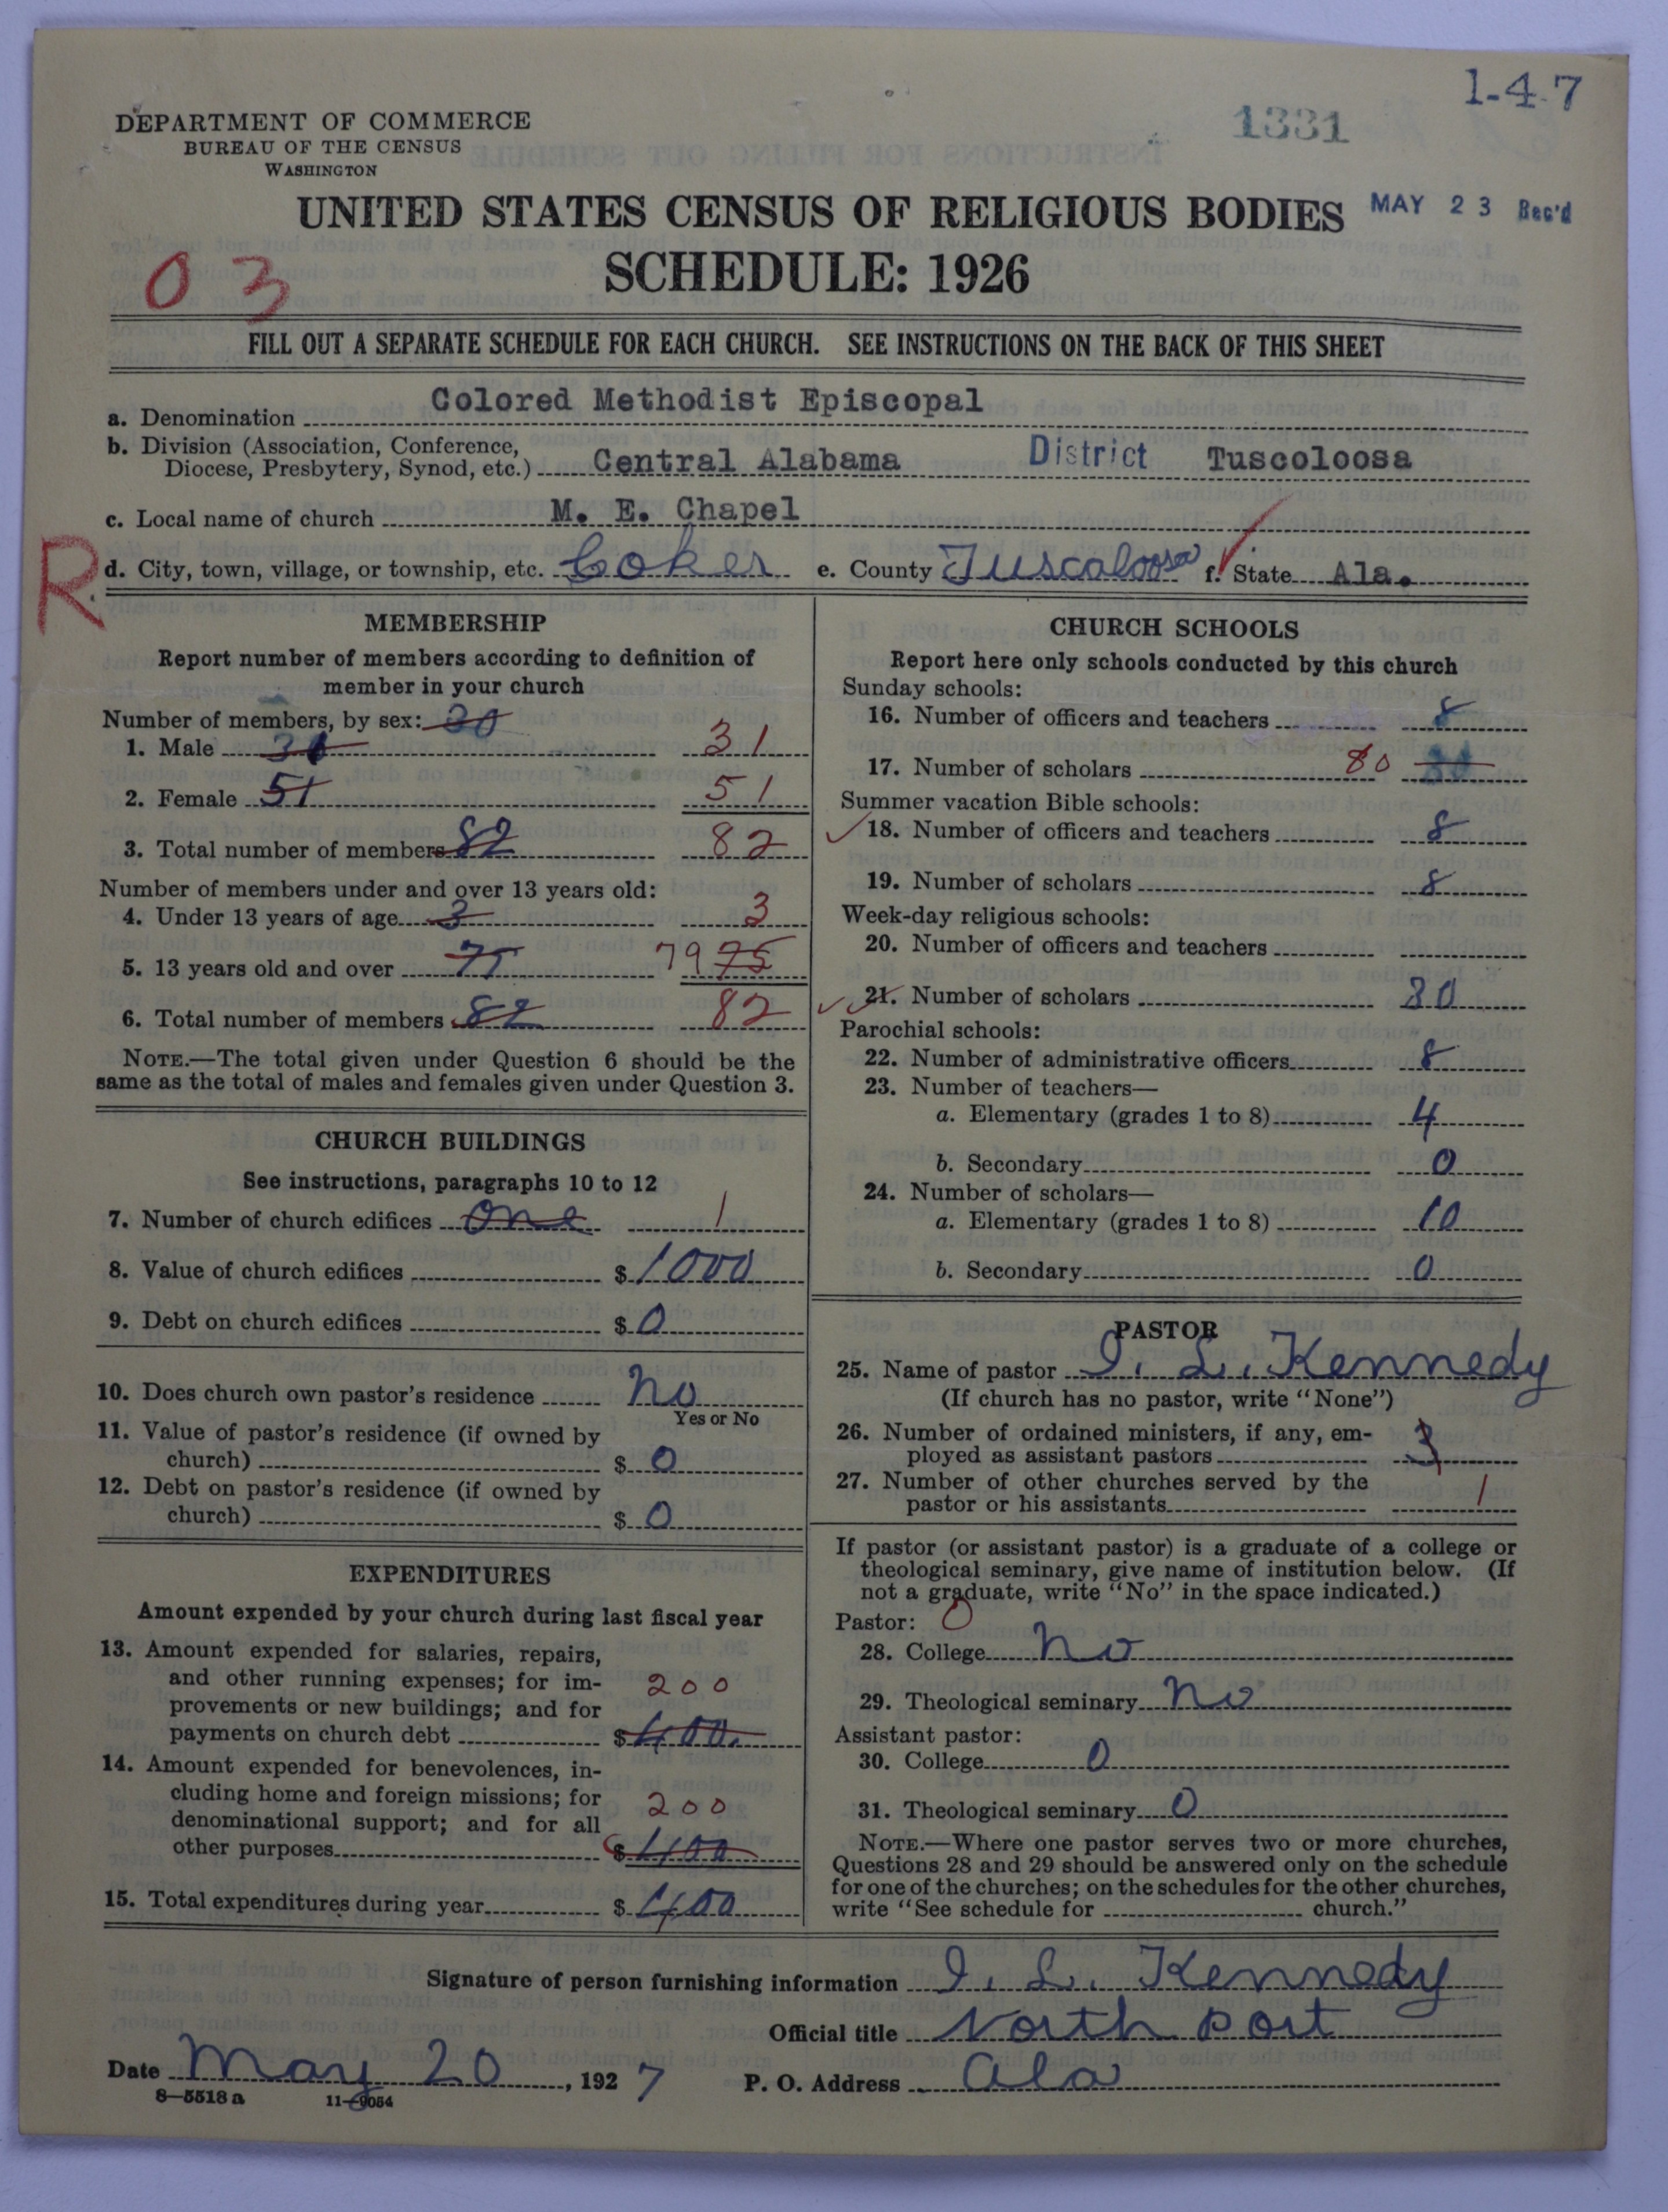 1-4-7
1331
DEPARTMENT OF COMMERCE
BUREAU OF THE CENSUS
WASHINGTON
UNITED STATES CENSUS OF RELIGIOUS BODIES
MAY 23 Rec'd
SCHEDULE: 1926
03
FILL OUT A SEPARATE SCHEDULE FOR EACH CHURCH. SEE INSTRUCTIONS ON THE BACK OF THIS SHEET
a. Denomination Colored Methodist Episcopal
b. Division (Association, Conference,
Diocese, Presbytery, Synod, etc.) Central Alabama District Tuscoloosa
c. Local name of church M. E. Chapel
R
d. City, town, village, or township, etc. Coker e. County Tuscaloosa f. State Ala.
MEMBERSHIP
Report number of members according to definition of
member in your church
Number of members, by sex: 30
1. Male 31 31
2. Female 51 51
3. Total number of members 82 82
Number of members under and over 13 years old:
4. Under 13 years of age 3 3
5. 13 years old and over 75 79 75
6. Total number of members 82 82
NOTE.—The total given under Question 6 should be the
same as the total of males and females given under Question 3.
CHURCH BUILDINGS
See instructions, paragraphs 10 to 12
7. Number of church edifices one 1
8. Value of church edifices $ 1000
9. Debt on church edifices $ 0
10. Does church own pastor's residence no
Yes or No
11. Value of pastor's residence (if owned by
church) $ 0
12. Debt on pastor's residence (if owned by
church) $ 0
EXPENDITURES
Amount expended by your church during last fiscal year
13. Amount expended for salaries, repairs,
and other running expenses; for im-
provements or new buildings; and for
payments on church debt $ 400. 200
14. Amount expended for benevolences, in-
cluding home and foreign missions; for
denominational support; and for all
other purposes $ 400 200
15. Total expenditures during year $ 400
CHURCH SCHOOLS
Report here only schools conducted by this church
Sunday schools:
16. Number of officers and teachers 8
17. Number of scholars 80
Summer vacation Bible schools:
18. Number of officers and teachers 8
19. Number of scholars 8
Week-day religious schools:
20. Number of officers and teachers
21. Number of scholars 30
Parochial schools:
22. Number of administrative officers 8
23. Number of teachers—
a. Elementary (grades 1 to 8) 4
b. Secondary 0
24. Number of scholars—
a. Elementary (grades 1 to 8) 10
b. Secondary 0
PASTOR
25. Name of pastor I. L. Kennedy
(If church has no pastor, write "None")
26. Number of ordained ministers, if any, em-
ployed as assistant pastors 3
27. Number of other churches served by the
pastor or his assistants 1
If pastor (or assistant pastor) is a graduate of a college or
theological seminary, give name of institution below. (If
not a graduate, write "No" in the space indicated.)
Pastor: 0
28. College no
29. Theological seminary no
Assistant pastor:
30. College 0
31. Theological seminary 0
NOTE.—Where one pastor serves two or more churches,
Questions 28 and 29 should be answered only on the schedule
for one of the churches; on the schedules for the other churches,
write "See schedule for church."
Signature of person furnishing information I. L. Kennedy
Official title North port
Date May 20, 1927 P. O. Address Ala
8—5518a 11—9054